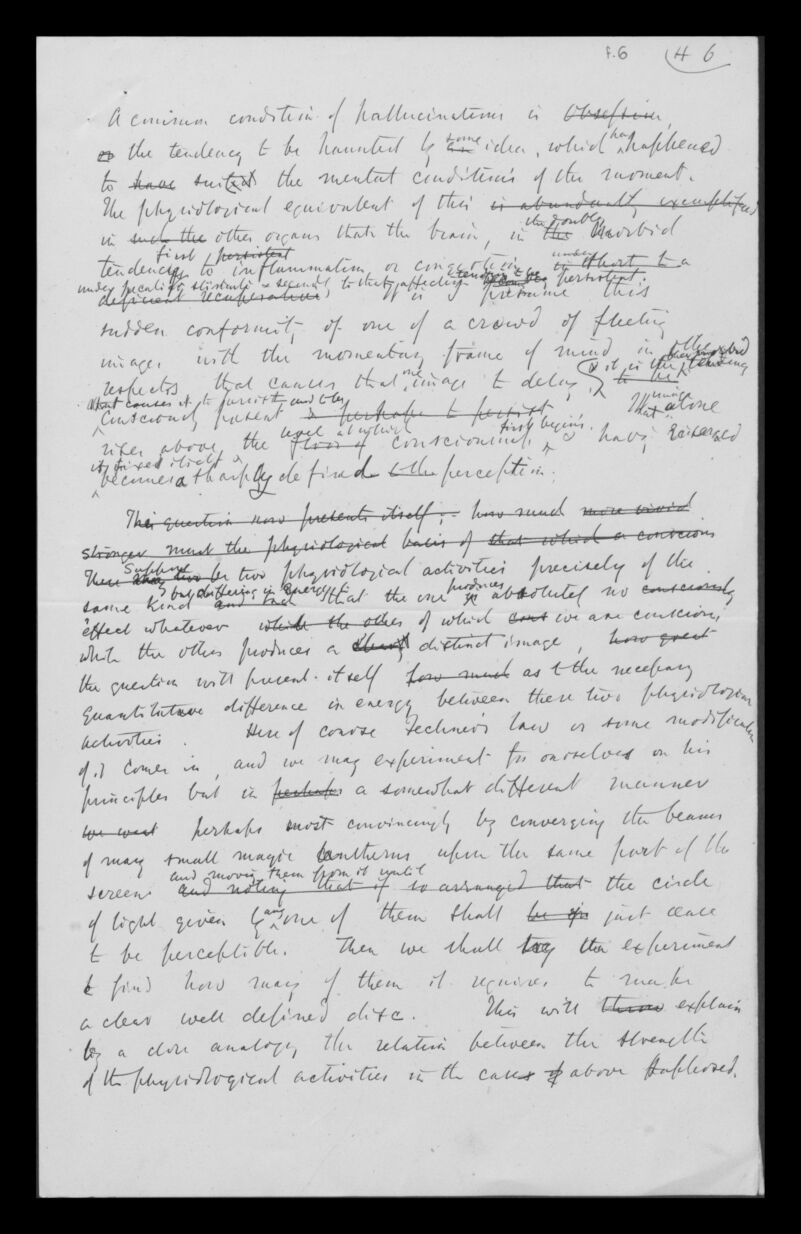 f.6 H 6
A common condition of hallucinations is Obsession,
or the tendency to be haunted by some an idea, which has happened
to have suited the mental conditions of the moment.
The physiological equivalent of this is abundantly exemplified
in such the other organs than the brain, in the double the morbid
tendency first to persistent inflammation or congestion under
under peculiar stimuli & secondly to that affection persistent.
deficient recuperation, is presume this
sudden conformity of one of a crowd of fleeting
images with the momentary frame of mind in the
respects that causes that one image to delay, & it is the morbid tendency
that causes it to persist and be
consciously present & perhaps to persist. That image alone
rises above the level at which floor of consciousness first begins, & having
it fixed itself
becomes a sharply defined to the perception.
The question now presents itself; how much more vivid
stronger must the physiological basis of that which a conscious
Suppose
There may two be two physiological activities precisely of the
same kind but differing in energy and that the one produces is absolutely no consciously
effect whatever while the other of which we are conscious,
while the other produces a clear distinct image, how great
the question will present itself how much as to the necessary
Quantitative difference in energy between these two physiological
activities. Here of course Fechner's law or some modification
of it comes in, and we may experiment for ourselves on his
principles but in perhaps a somewhat different manner
we want perhaps most convincingly by converging the beams
of many small magic lanthorns upon the same part of the
and moving them from it until
screen and noting that if so arranged that the circle
of light given by any one of them shall just cease
to be perceptible. Then we shall try the experiment
to find how many of them it requires to make
a clear well defined disc. This will explain
by a close analogy the relation between the strength
of the physiological activities in the cases above supposed.